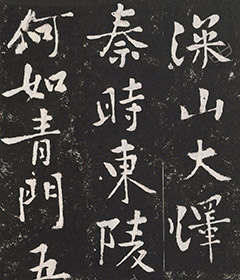 深山大澤
秦時東陵
何如青門五